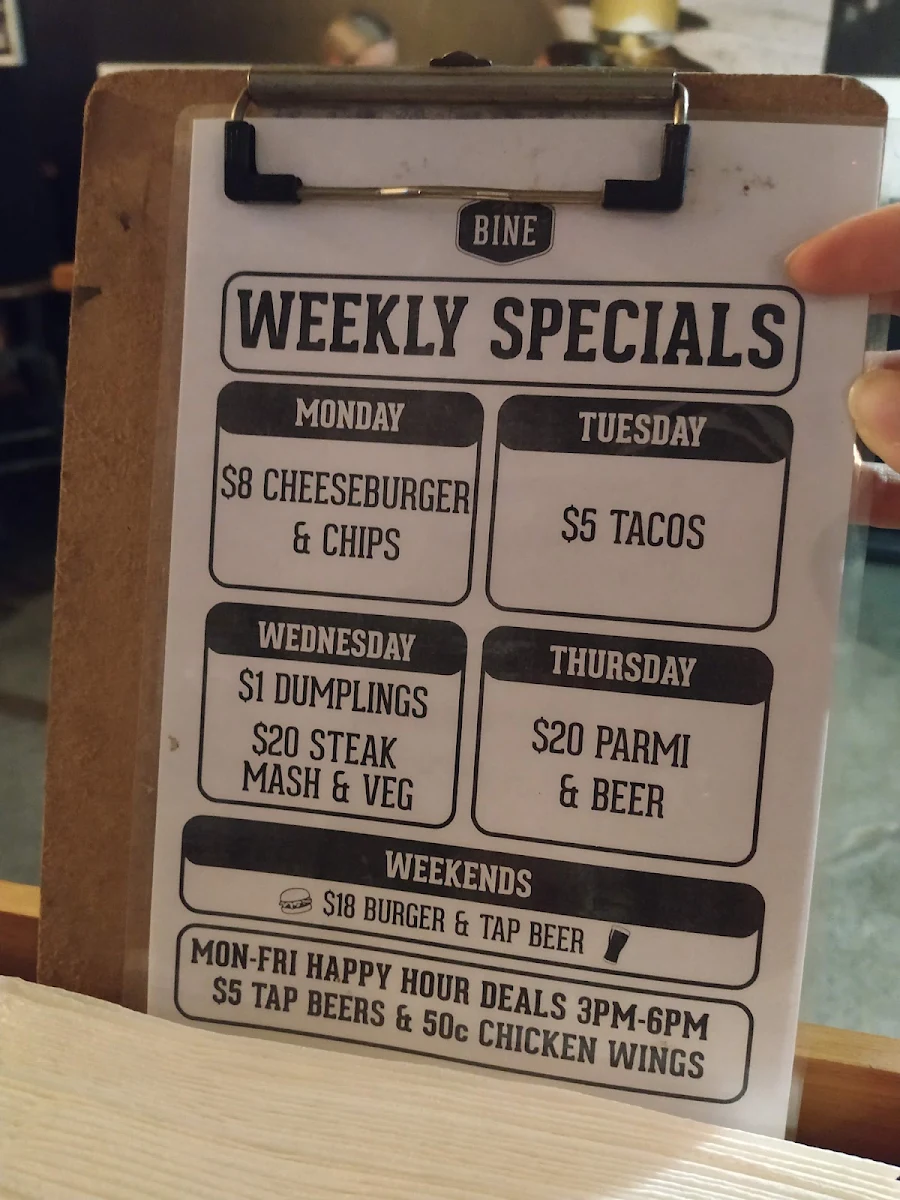 BINE
WEEKLY SPECIALS
MONDAY
$8 CHEESEBURGER
& CHIPS
TUESDAY
$5 TACOS
WEDNESDAY
$1 DUMPLINGS
$20 STEAK
MASH & VEG
THURSDAY
$20 PARMI
& BEER
WEEKENDS
$18 BURGER & TAP BEER
MON-FRI HAPPY HOUR DEALS 3PM-6PM
$5 TAP BEERS & 50c CHICKEN WINGS